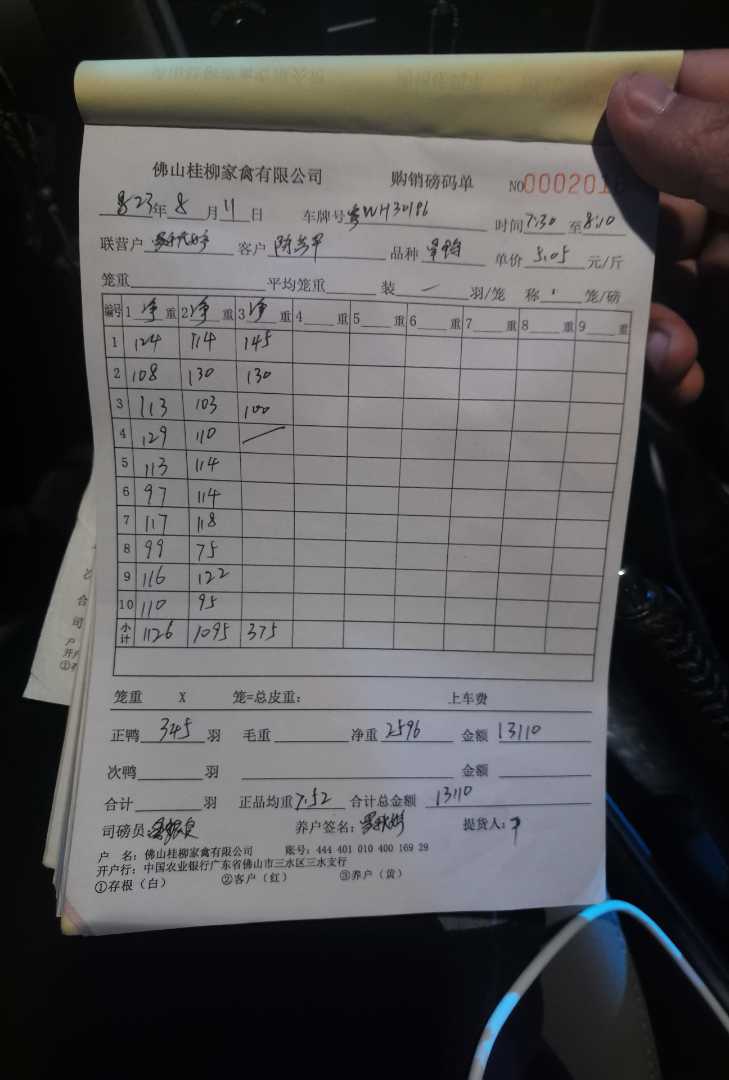 佛山桂柳家禽有限公司 购销磅码单 NO000201
823年8月11日 车牌号粤WH30186 时间7:30至8:10
联营户 客户 品种 单价5.05元/斤
笼重 平均笼重 装一羽/笼 称 笼/磅
编号 1净重 2净重 3净重 4重 5重 6重 7重 8重 9重
1 124 114 145
2 108 130 130
3 113 103 100
4 129 110
5 113 114
6 97 114
7 117 118
8 99 75
9 116 122
10 110 95
小计 1126 1095 375
笼重 X 笼=总皮重: 上车费
正鸭345羽 毛重 净重2596 金额13110
次鸭 羽 金额
合计 羽 正品均重7.52 合计总金额13110
司磅员: 养户签名: 提货人:
户 名: 佛山桂柳家禽有限公司 账号: 444 401 010 400 169 29
开户行: 中国农业银行广东省佛山市三水区三水支行
①存根(白) ②客户(红) ③养户(黄)